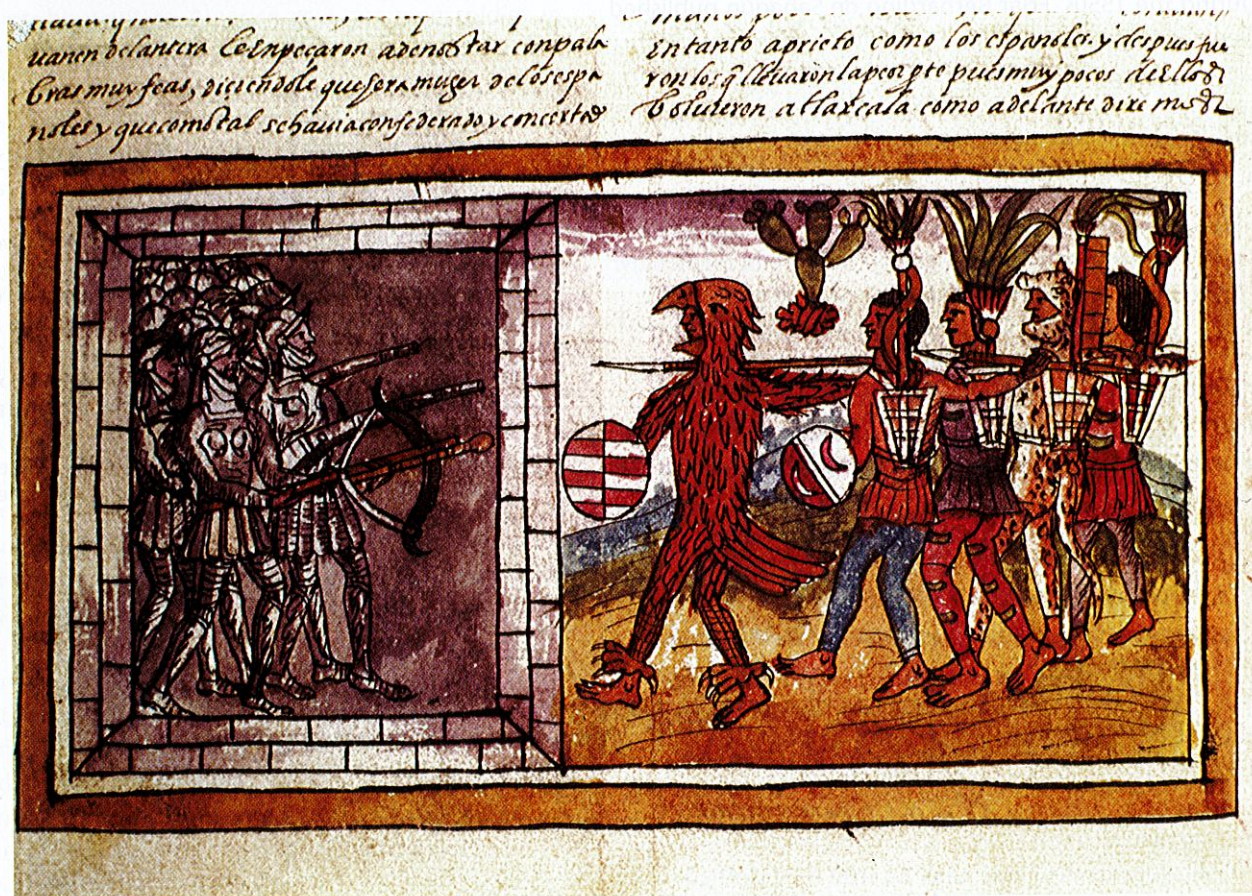 uanen delantera le Enpeçaron adenostar conpala
bras muy feas, diciendole que sera muger delosespa
noles y quecomotal sehauiaconfederado y concertado
Entanto aprieto como los espanoles. y despues fue
ron los q̃ lleuaron la peor pte pues muy pocos de Ellos
Boluieron atlaxcala como adelante diremos